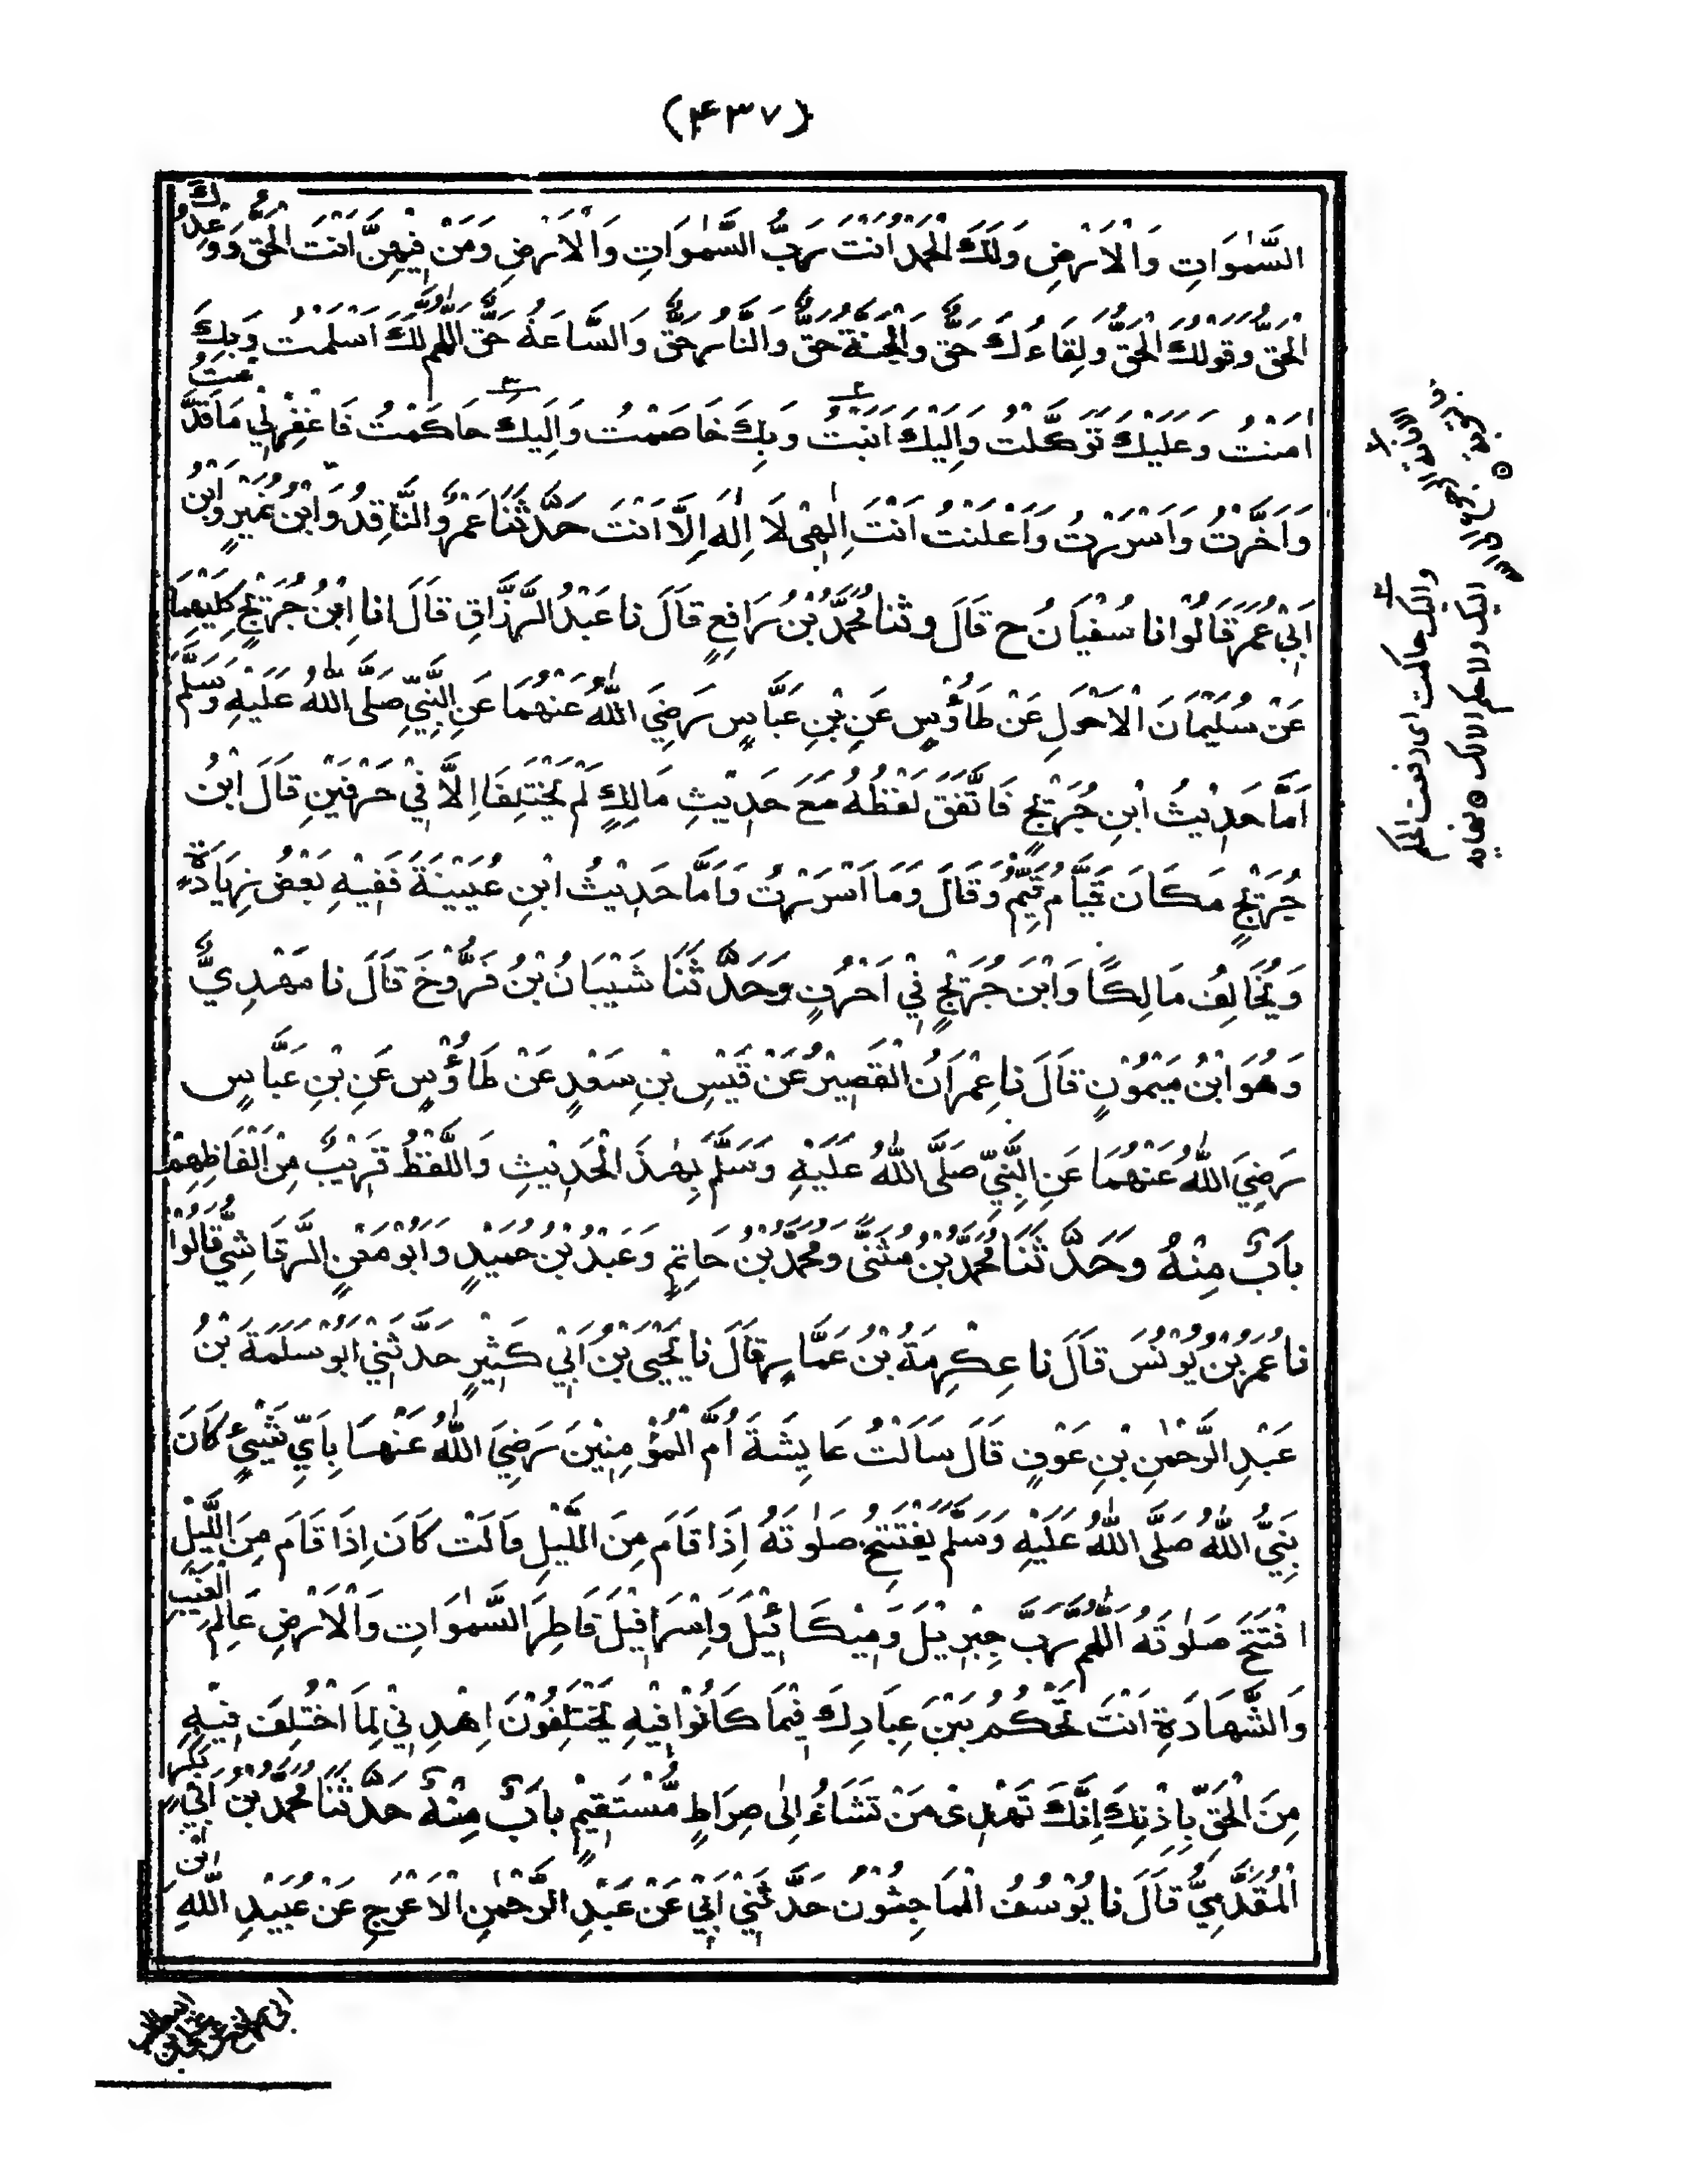 (۴۳۷)
السَّمٰوَاتِ وَالْاَرْضِ وَلَكَ الْحَمْدُ اَنْتَ رَبُّ السَّمٰوَاتِ وَالْاَرْضِ وَمَنْ فِيْهِنَّ اَنْتَ الْحَقُّ وَوَعْدُكَ
الْحَقُّ وَقَوْلُكَ الْحَقُّ وَلِقَاءُكَ حَقٌّ وَالْجَنَّةُ حَقٌّ وَالنَّارُ حَقٌّ وَالسَّاعَةُ حَقٌّ اَللّٰهُمَّ لَكَ اَسْلَمْتُ وَبِكَ
اٰمَنْتُ وَعَلَيْكَ تَوَكَّلْتُ وَاِلَيْكَ اَنَبْتُ وَبِكَ خَاصَمْتُ وَاِلَيْكَ حَاكَمْتُ فَاغْفِرْ لِيْ مَا قَدَّمْتُ
وَاَخَّرْتُ وَاَسْرَرْتُ وَاَعْلَنْتُ اَنْتَ اِلٰهِيْ لَا اِلٰهَ اِلَّا اَنْتَ حَدَّثَنَا عَمْرٌو النَّاقِدُ وَابْنُ نُمَيْرٍ وَابْنُ
اَبِيْ عُمَرَ قَالُوْا نا سُفْيَانُ ح قَالَ وثنا مُحَمَّدُ بْنُ رَافِعٍ قَالَ نا عَبْدُ الرَّزَّاقِ قَالَ انا ابْنُ جُرَيْجٍ كِلَيْهِمَا
عَنْ سُلَيْمَانَ الْاَحْوَلِ عَنْ طَاوُسٍ عَنِ بْنِ عَبَّاسٍ رَضِيَ اللّٰهُ عَنْهُمَا عَنِ النَّبِيِّ صَلَّى اللّٰهُ عَلَيْهِ وَسَلَّمَ
اَمَّا حَدِيْثُ ابْنِ جُرَيْجٍ فَاتَّفَقَ لَفْظُهُ مَعَ حَدِيْثِ مَالِكٍ لَمْ يَخْتَلِفَا اِلَّا فِيْ حَرْفَيْنِ قَالَ ابْنُ
جُرَيْجٍ مَكَانَ قَيَّامُ قَيِّمُ وَقَالَ وَمَا اَسْرَرْتُ وَاَمَّا حَدِيْثُ ابْنِ عُيَيْنَةَ فَفِيْهِ بَعْضُ زِيَادَةٍ
وَيُخَالِفُ مَالِكًا وَابْنَ جُرَيْجٍ فِيْ اَحْرُفٍ وَحَدَّثَنَا شَيْبَانُ بْنُ فَرُّوْخَ قَالَ نا مَهْدِيٌّ
وَهُوَ ابْنُ مَيْمُوْنٍ قَالَ نا عِمْرَانُ الْقَصِيْرُ عَنْ قَيْسِ بْنِ سَعْدٍ عَنْ طَاوُسٍ عَنِ بْنِ عَبَّاسٍ
رَضِيَ اللّٰهُ عَنْهُمَا عَنِ النَّبِيِّ صَلَّى اللّٰهُ عَلَيْهِ وَسَلَّمَ بِهٰذَ الْحَدِيْثِ وَاللَّفْظُ قَرِيْبٌ مِنْ اَلْفَاظِهِمْ
بَابٌ مِنْهُ وَحَدَّثَنَا مُحَمَّدُ بْنُ مُثَنًّى وَمُحَمَّدُ بْنُ حَاتِمٍ وَعَبْدُ بْنُ حُمَيْدٍ وَاَبُوْ مَعْنٍ الرَّقَاشِيُّ قَالُوْا
نا عُمَرُ بْنُ يُوْنُسَ قَالَ نا عِكْرِمَةُ بْنُ عَمَّارٍ قَالَ نا يَحْيَى بْنُ اَبِيْ كَثِيْرٍ حَدَّثَنِيْ اَبُوْ سَلَمَةَ بْنُ
عَبْدِ الرَّحْمٰنِ بْنِ عَوْفٍ قَالَ سَاَلْتُ عَايِشَةَ اُمَّ الْمُؤْمِنِيْنَ رَضِيَ اللّٰهُ عَنْهَا بِاَيِّ شَيْئٍ كَانَ
نَبِيُّ اللّٰهِ صَلَّى اللّٰهُ عَلَيْهِ وَسَلَّمَ يَفْتَتِحُ صَلٰوتَهُ اِذَا قَامَ مِنَ اللَّيْلِ قَالَتْ كَانَ اِذَا قَامَ مِنَ اللَّيْلِ
افْتَتَحَ صَلٰوتَهُ اَللّٰهُمَّ رَبَّ جِبْرِيْلَ وَمِيْكَائِيْلَ وَاِسْرَافِيْلَ فَاطِرَ السَّمٰوَاتِ وَالْاَرْضِ عَالِمَ الْغَيْبِ
وَالشَّهَادَةِ اَنْتَ تَحْكُمُ بَيْنَ عِبَادِكَ فِيْمَا كَانُوْا فِيْهِ يَخْتَلِفُوْنَ اِهْدِنِيْ لِمَا اخْتُلِفَ فِيْهِ
مِنَ الْحَقِّ بِاِذْنِكَ اِنَّكَ تَهْدِىْ مَنْ تَشَاءُ اِلٰى صِرَاطٍ مُّسْتَقِيْمٍ بَابٌ مِنْهُ حَدَّثَنَا مُحَمَّدُ بْنُ اَبِيْ بَكْرٍ
الْمُقَدَّمِيُّ قَالَ نا يُوْسُفُ الْمَاجِشُوْنَ حَدَّثَنِيْ اَبِيْ عَنْ عَبْدِ الرَّحْمٰنِ الْاَعْرَجِ عَنْ عُبَيْدِ اللّٰهِ ابْنِ
واليك حاكمت اى رفعت الحكم
اليك ولا حكم الا لك ۵ نهايه